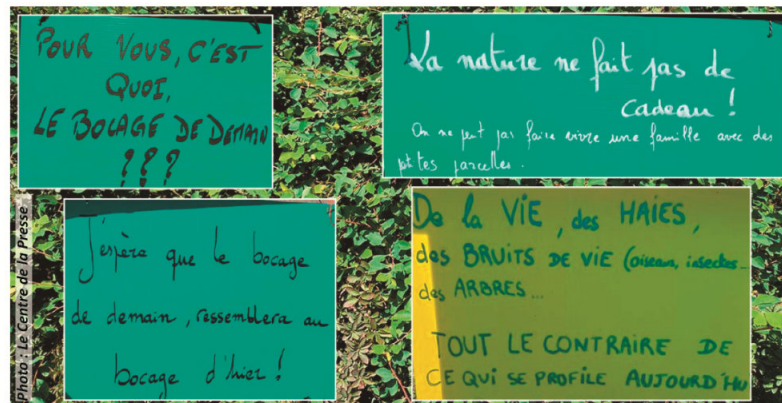 POUR VOUS, C'EST
QUOI,
LE BOCAGE DE DEMAIN
???
La nature ne fait pas de
cadeau !
On ne peut pas faire vivre une famille avec des
ptites parcelles.
J'espère que le bocage
de demain, ressemblera au
bocage d'hier !
De la VIE, des HAIES,
des BRUITS DE VIE (oiseau, insectes...
des ARBRES...
TOUT LE CONTRAIRE DE
CE QUI SE PROFILE AUJOURD'HU
Photo : Le Centre de la Presse